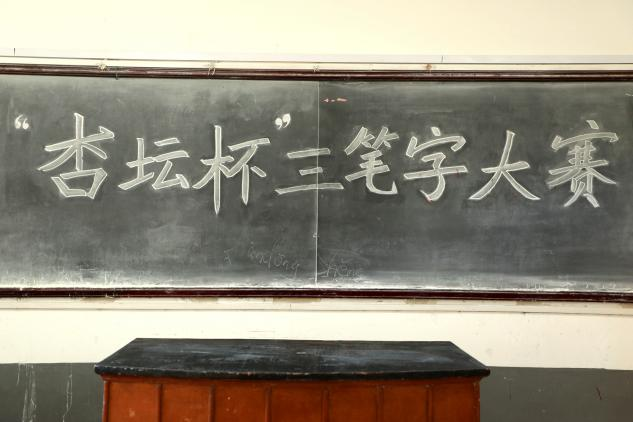 “杏坛杯”三笔字大赛